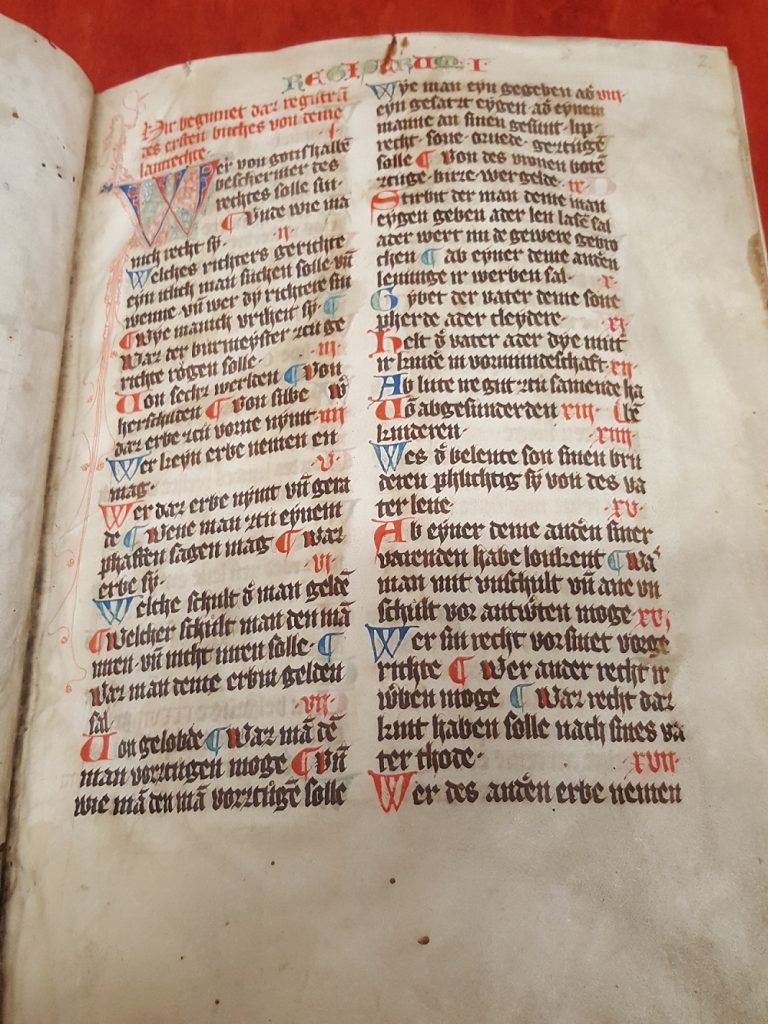 REGISTRUM I
2
Hir beginnet daz registrū
des ersten buches von deme
lantrechte · I ·
Wer von gotishalbē
beschermer des
rechtes solle sin·
Vnde wie ma
nich recht sy· II
Welches richters gerichte
eyn itlich man suchen solle vn̄
wenne· vn̄ wer dy richtere sin
Wye manich vrteil sy·
Waz der burmeyster rzu ge
richte rögen solle· III·
Von sechz werlden Von
herschilden Von sibe
daz erbe rzu vorne nymt IIII
Wer keyn erbe nemen en
mag· V·
Wer daz erbe nymt vn̄ gera
de Wene man rzu eynem
phaffen sagen mag Waz
erbe sy· VI·
Welche schult d' man geldē
Welcher schult man den mā
inen· vn̄ nicht inen solle·
Waz man deme erbin gelden
sal· VII·
Von gelobde Waz mā dē
man vorrzugen moge Vn̄
wie mā den mā vorrzugē solle
Wye man eyn gegeben ab VIII·
eyn gesatzt eygen· ab eynem
manne an sinen gesunt· lip·
recht· sone· gerzugē
solle Von des vronen botē
rzuge· buze· wergelde· IX
Stirbit der man deme man
eygen geben ader len lasē sal
ader wert im de gewere gebro
chen ab eyner deme andēn
leninge ir werben sal· X·
Gybet der vater deme sone
pherde ader cleydere· XI·
Helt d' vater ader dye mut
ir kinde in vormundeschaft XII
Ab lute ir gut rzu samende ha
Vō abgesunderden XIII·
kinderen· XIIII·
Wes d' belente son sinen bru
deren phlichtig sy von des va
ter lene· XV·
Ab eyner deme andēn siner
varenden habe loukent Wa
man mit vnschult vn̄ ane vn
schult vor antwͤten moge XVI
Wer sin recht vorsinet vorge
richte Wer ander recht ir
wͤben moge Waz recht daz
kint haben solle nach sines va
ter thode· XVII·
Wer des andēn erbe nemen